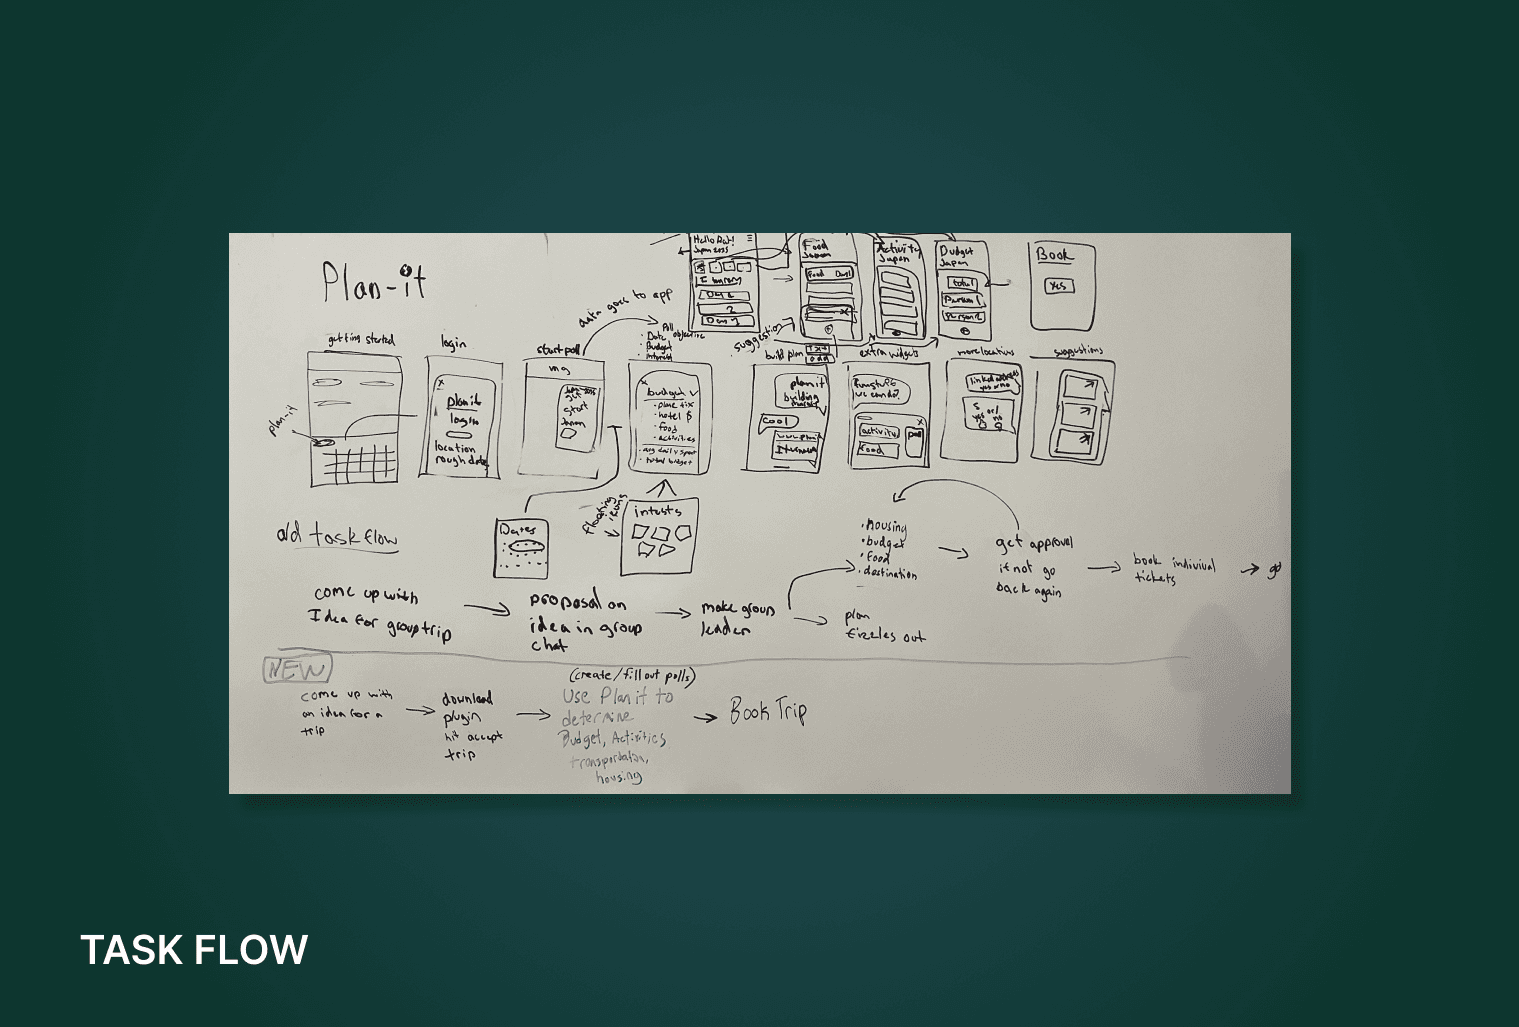 Plan-it
Hello
Japan 2025
Food
Japan
Food Day 1
Activity
Japan
Budget
Japan
total
Person 1
Person 2
Book
yes
data goes to app
Poll objective
Date
Budget
suggestion
getting started
login
start poll
build plan
add
extra widgets
more locations
suggestions
plan-it
x
planit
login
location
rough date
msg
start
x
budget ✓
plane tix
hotel $
food
activities
total budget
planit
building
cool
fun stuff
we can do?
activity
food
poll
x
yes or no
yes or
no
Dates
floating
icons
intrests
old task flow
come up with
Idea for group trip
proposal on
idea in group
chat
make group
leader
plan
fizzles out
• housing
• budget
• food
• destination
get approval
if not go
back again
book indiviual
tickets
go
NEW
come up with
an idea for a
trip
download
plugin
hit accept
trip
(create/fill out polls)
Use Plan it to
determine
Budget, Activities
transportation,
housing
Book Trip
TASK FLOW